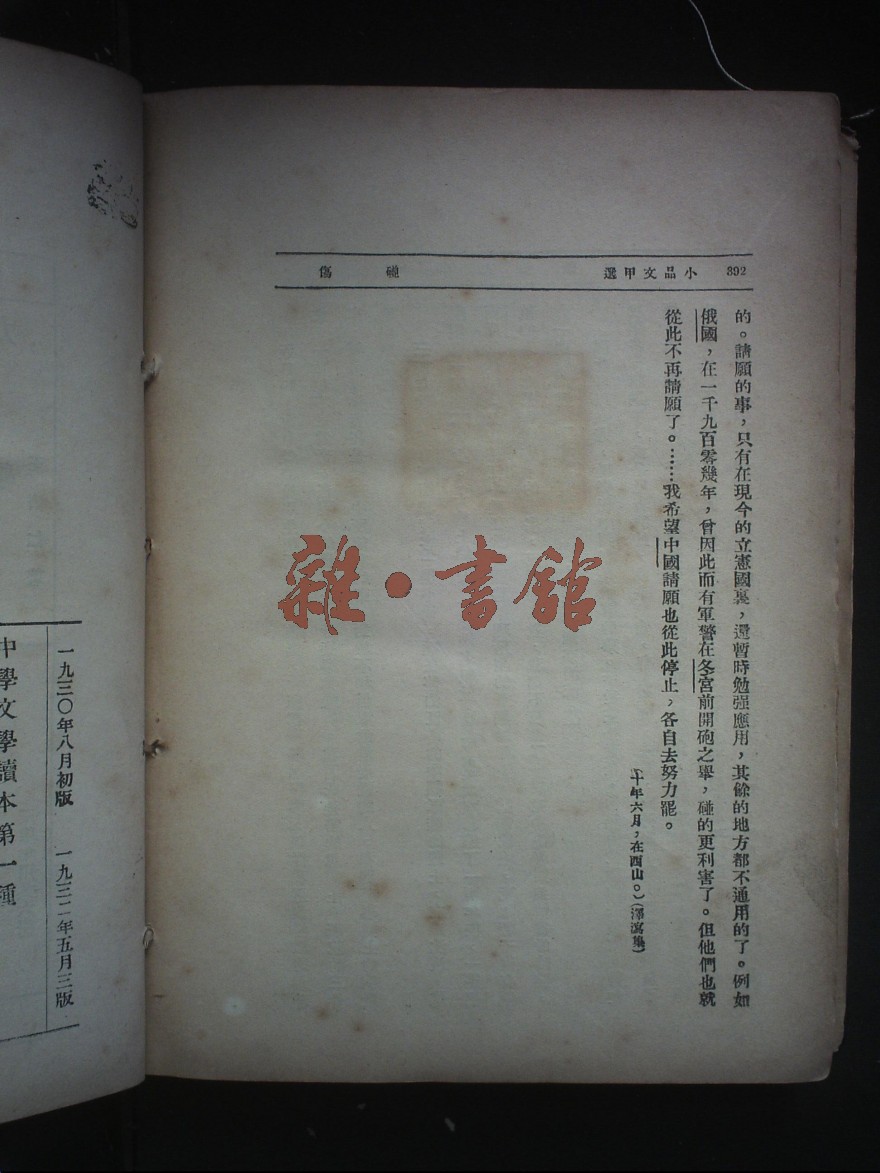 392　小品文甲選　碰傷
的。請願的事，只有在現今的立憲國裏，還暫時勉强應用，其餘的地方都不通用的了。例如
俄國，在一千九百零幾年，曾因此而有軍警在冬宮前開砲之舉，碰的更利害了。但他們也就
從此不再請願了。……我希望中國請願也從此停止，各自去努力罷。
（十年六月，在西山。）（澤瀉集）
雜·書館
一九三〇年八月初版　一九三二年五月三版
中學文學讀本第一種